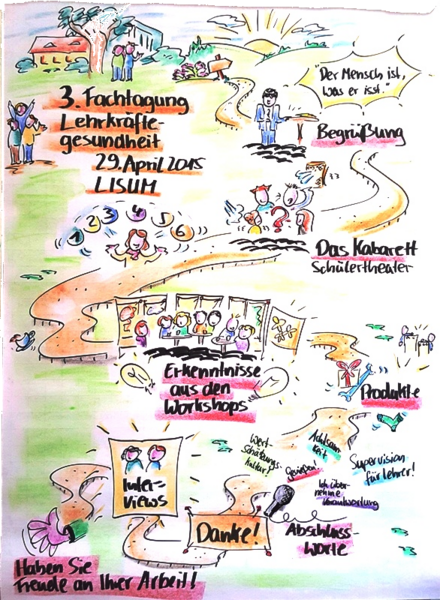 3. Fachtagung
Lehrkräfte-
gesundheit
29. April 2015
LISUM
"Der Mensch ist,
was er isst."
Begrüßung
1 2 3 4 5 6
?
Das Kabarett
Schülertheater
Erkenntnisse
aus den
Workshops
Produkte
Inter-
views
Wert-
schätzungs-
kultur!
Achtsam-
keit
Genießen!
Ich über-
nehme
Verantwortung
Supervision
für Lehrer!
Danke!
Abschluss-
Worte
Haben Sie
Freude an Ihrer Arbeit!